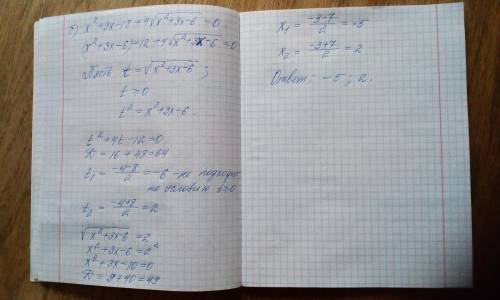 б) x² + 3x - 18 + 4√x²+3x-6 = 0
(x²+3x-6) - 12 + 4√x²+3x-6 = 0
Пусть t = √x²+3x-6 ;
t ≥ 0
t² = x²+3x-6.
t² + 4t - 12 = 0
D = 16 + 48 = 64
t₁ = (-4-8)/2 = -6 - не подходит
по условию t≥0
t₂ = (-4+8)/2 = 2
√x²+3x-6 = 2
x²+3x-6 = 2²
x²+3x-10 = 0
D = 9 + 40 = 49
x₁ = (-3-7)/2 = -5
x₂ = (-3+7)/2 = 2
Ответ: -5 ; 2.